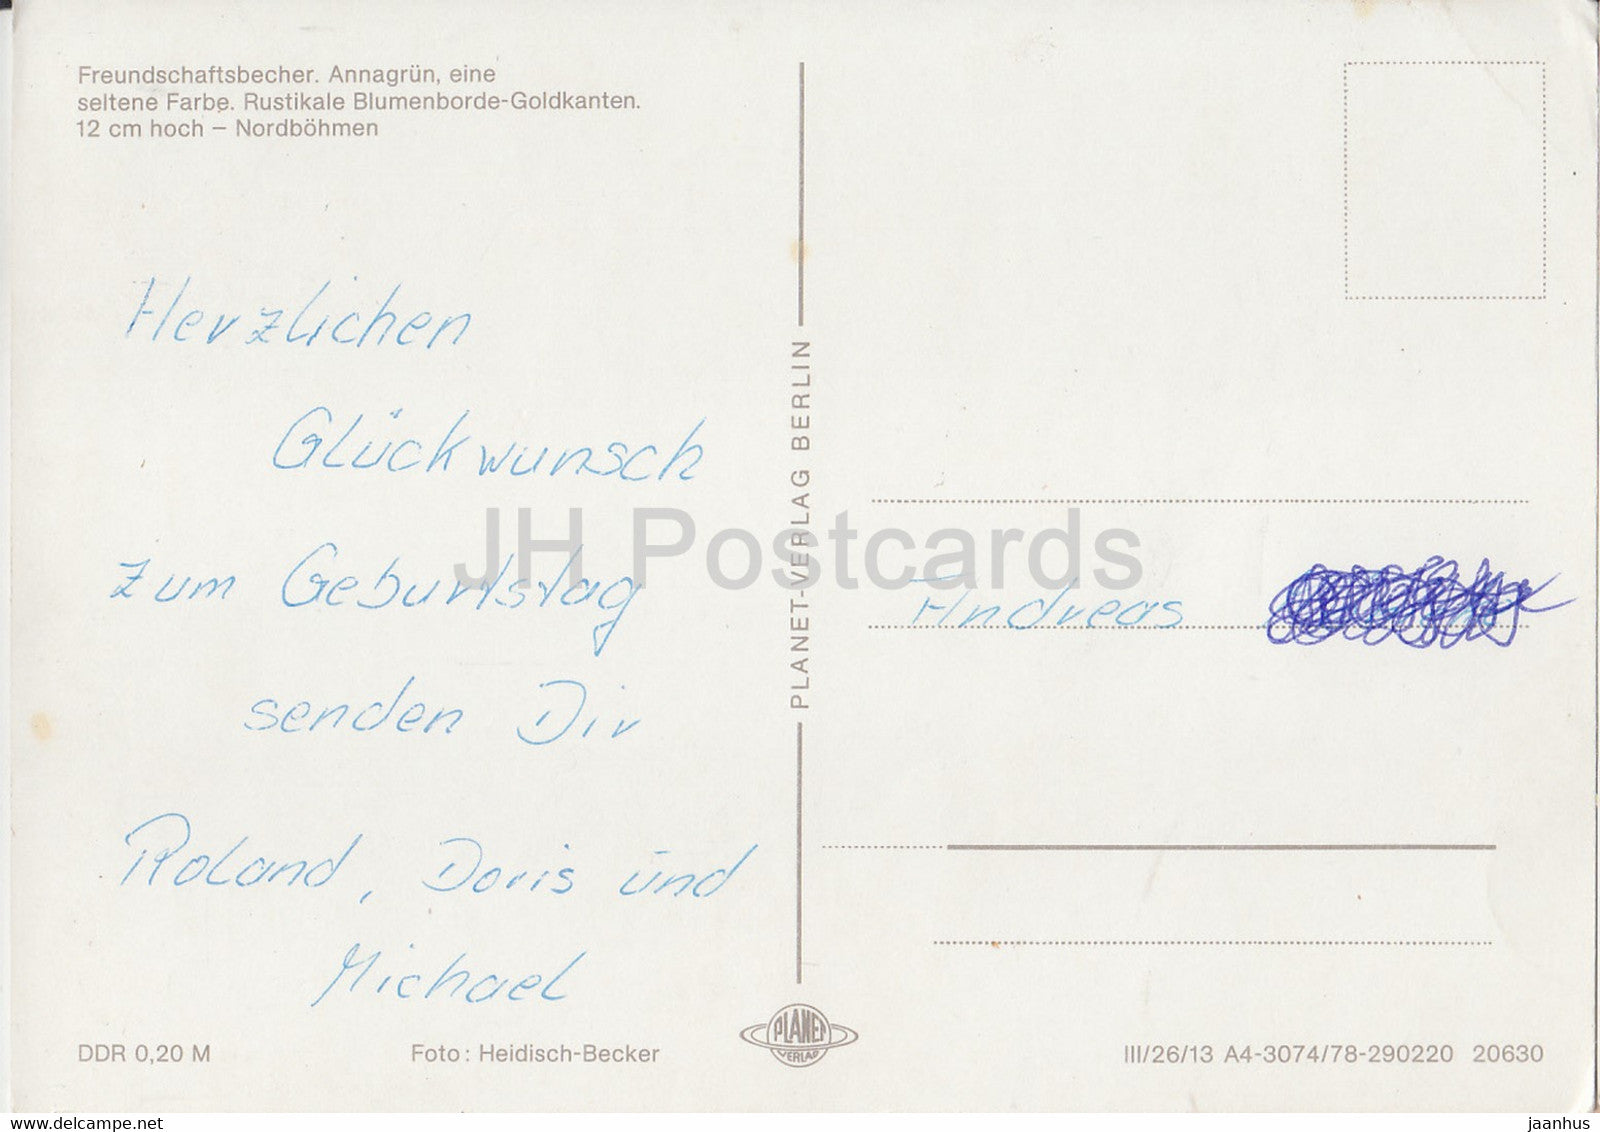 Freundschaftsbecher. Annagrün, eine
seltene Farbe. Rustikale Blumenborde-Goldkanten.
12 cm hoch – Nordböhmen
Herzlichen
Glückwunsch
zum Geburtstag
senden Dir
Roland, Doris und
Michael
PLANET-VERLAG BERLIN
Andreas
JH Postcards
DDR 0,20 M
Foto: Heidisch-Becker
PLANET
VERLAG
III/26/13 A4-3074/78-290220 20630
delcampe.net
jaanhus